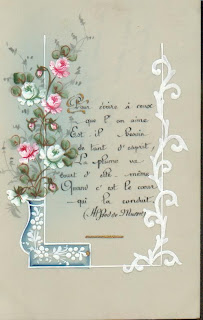 Pour écrire à ceux
que l'on aime
Est il besoin
de tant d'esprit
La plume va
tout d'elle-même
Quand c'est le cœur
qui la conduit
(Alfred de Musset)